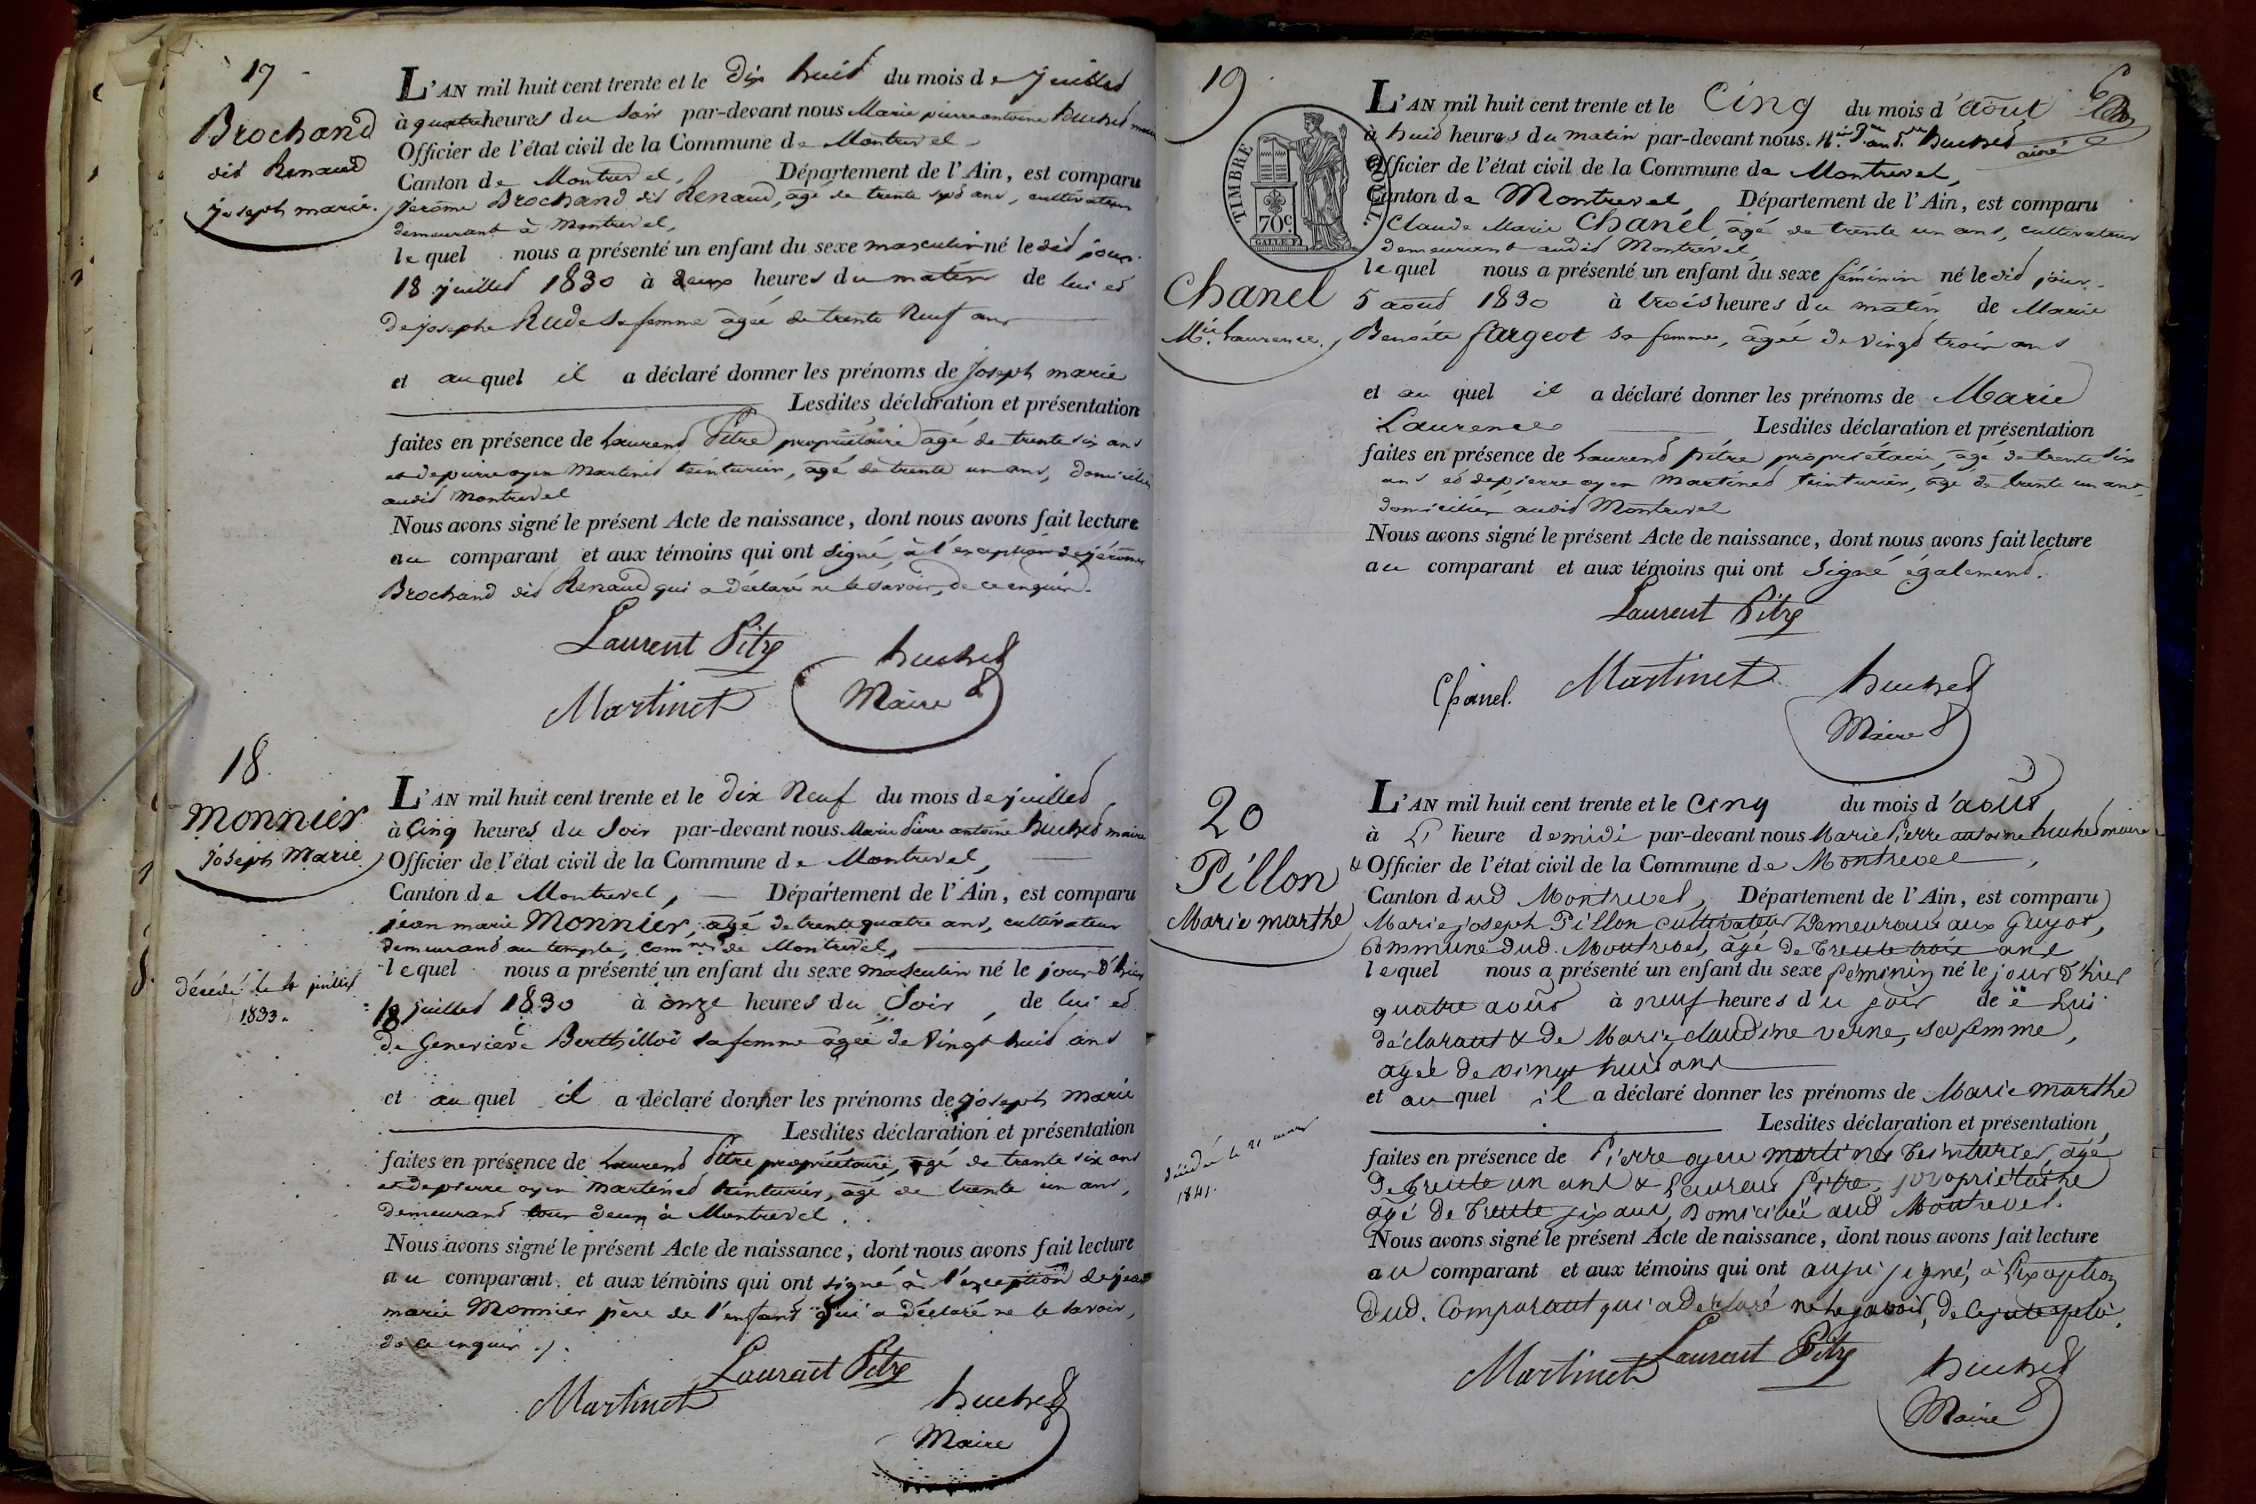 17
Brochand
dit Renaud
joseph marie.
L'AN mil huit cent trente et le dix huit du mois de juillet
à quatre heures du soir par-devant nous Marie pierre antoine huchet maire
Officier de l'état civil de la Commune de Montrevel
Canton de Montrevel, Département de l'Ain, est comparu
jérome Brochand dit Renaud, agé de trente sept ans, cultivateur
demeurant à Montrevel,
lequel nous a présenté un enfant du sexe masculin né le dit jour
18 juillet 1830 à deux heures du matin de lui et
de josephe Rude sa femme agée de trente neuf ans
et auquel il a déclaré donner les prénoms de joseph marie
Lesdites déclaration et présentation
faites en présence de Laurent Pitre propriétaire agé de trente six ans
et de pierre oyen Martinet teinturier, agé de trente un ans, domiciliés
audit Montrevel
Nous avons signé le présent Acte de naissance, dont nous avons fait lecture
au comparant et aux témoins qui ont signé, à l'exception de jérome
Brochand dit Renaud qui a déclaré ne le savoir, de ce enquis.
Laurent Pitre
huchet
Martinet
Maire
18.
Monnier
joseph Marie
décédé le 4 juillet
1833.
L'AN mil huit cent trente et le dix neuf du mois de juillet
à Cinq heures du Soir par-devant nous Marie Pierre antoine huchet maire
Officier de l'état civil de la Commune de Montrevel,
Canton de Montrevel, Département de l'Ain, est comparu
jean marie Monnier, agé de trente quatre ans, cultivateur
demeurant au temple, comne de Montrevel,
lequel nous a présenté un enfant du sexe masculin né le jour d'hier
18 juillet 1830 à onze heures du Soir, de lui et
de Geneviève Berthillod sa femme agée de vingt huit ans
et auquel il a déclaré donner les prénoms de joseph Marie
Lesdites déclaration et présentation
faites en présence de Laurent Pitre propriétaire, agé de trente six ans
et de pierre oyen Martinet teinturier, agé de trente un ans,
demeurant tour deux à Montrevel.
Nous avons signé le présent Acte de naissance, dont nous avons fait lecture
au comparant et aux témoins qui ont signé à l'exception de jean
marie Monnier père de l'enfant qui a déclaré ne le savoir,
de ce enquis ./.
Laurent Pitre
Martinet
huchet
Maire
19
6
TIMBRE
ROYAL
70c.
Chanel
Mie. Laurence.
L'AN mil huit cent trente et le Cinq du mois d'août
à huit heures du matin par-devant nous huchet
Officier de l'état civil de la Commune de Montrevel,
Canton de Montrevel Département de l'Ain, est comparu
Claude Marie Chanel, agé de trente un ans, cultivateur
demeurant audit Montrevel
lequel nous a présenté un enfant du sexe féminin né le dit jour
5 aout 1830 à trois heures du matin de Marie
Benoite fargeot sa femme, agée de vingt trois ans
et au quel il a déclaré donner les prénoms de Marie
Laurence Lesdites déclaration et présentation
faites en présence de Laurent Pitre propriétaire, agé de trente six
ans et de pierre oyen Martinet teinturier, agé de trente un ans,
domiciliés audit Montrevel
Nous avons signé le présent Acte de naissance, dont nous avons fait lecture
au comparant et aux témoins qui ont signé également.
Laurent Pitre
Chanel.
Martinet
huchet
Maire
20
Pillon
Marie marthe
décédée le 21 mars
1841.
L'AN mil huit cent trente et le cinq du mois d'août
à heure de midi par-devant nous Marie Pierre antoine huchet maire
& Officier de l'état civil de la Commune de Montrevel,
Canton dud Montrevel, Département de l'Ain, est comparu
Marie joseph Pillon, cultivateur Demeurant aux Guyot,
Commune dud. Montrevel, agé de trente trois ans
lequel nous a présenté un enfant du sexe féminin né le jour d'hier
quatre août à neuf heures du soir de lui
déclarant & de Marie claudine verne, sa femme,
agée de vingt huit ans
et auquel il a déclaré donner les prénoms de Marie marthe
Lesdites déclaration et présentation
faites en présence de Pierre oyen martinet teinturier, agé
de trente un ans & Laurent Pitre, propriétaire
agé de trente six ans, Domiciliés aud Montrevel.
Nous avons signé le présent Acte de naissance, dont nous avons fait lecture
au comparant et aux témoins qui ont aussi signé, à l'exception
dud. Comparant qui a déclaré ne le savoir, de ce
Martinet
Laurent Pitre
huchet
Maire